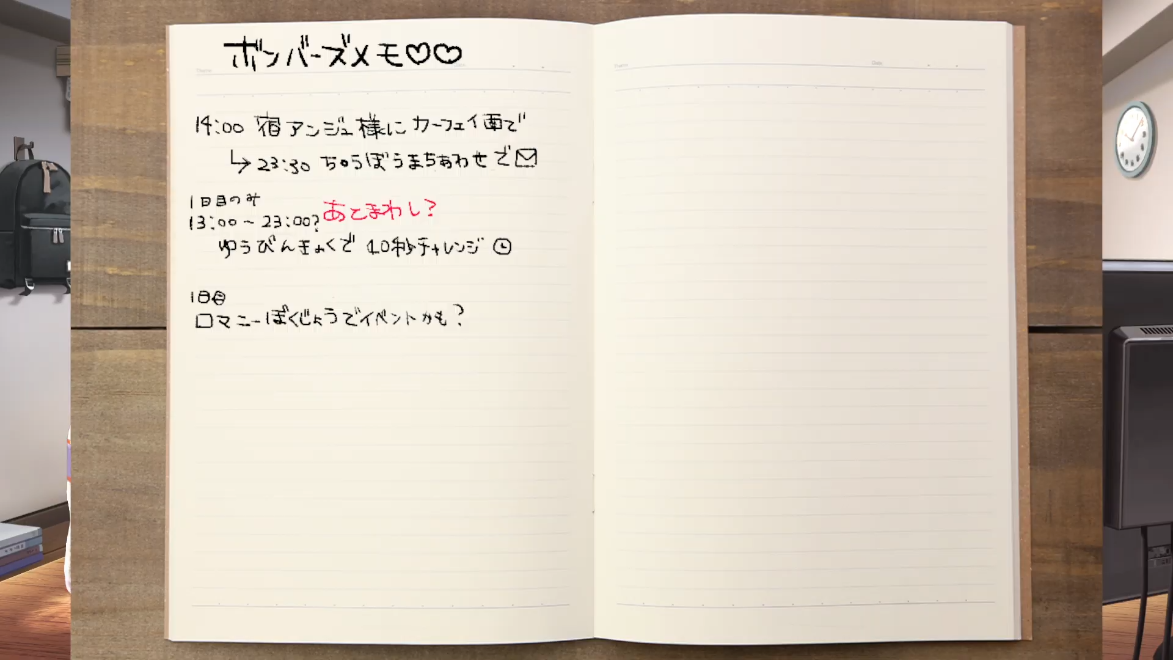 ボンバーズメモ♡♡
14:00 宿アンジュ様にカーフェイ面で
↳23:30 ちゅうぼうまちあわせで✉
1日目のみ
13:00~23:00? あとまわし?
ゆうびんきょくで 10秒チャレンジ🕒
1日目
ロマニーぼくじょうでイベントかも?